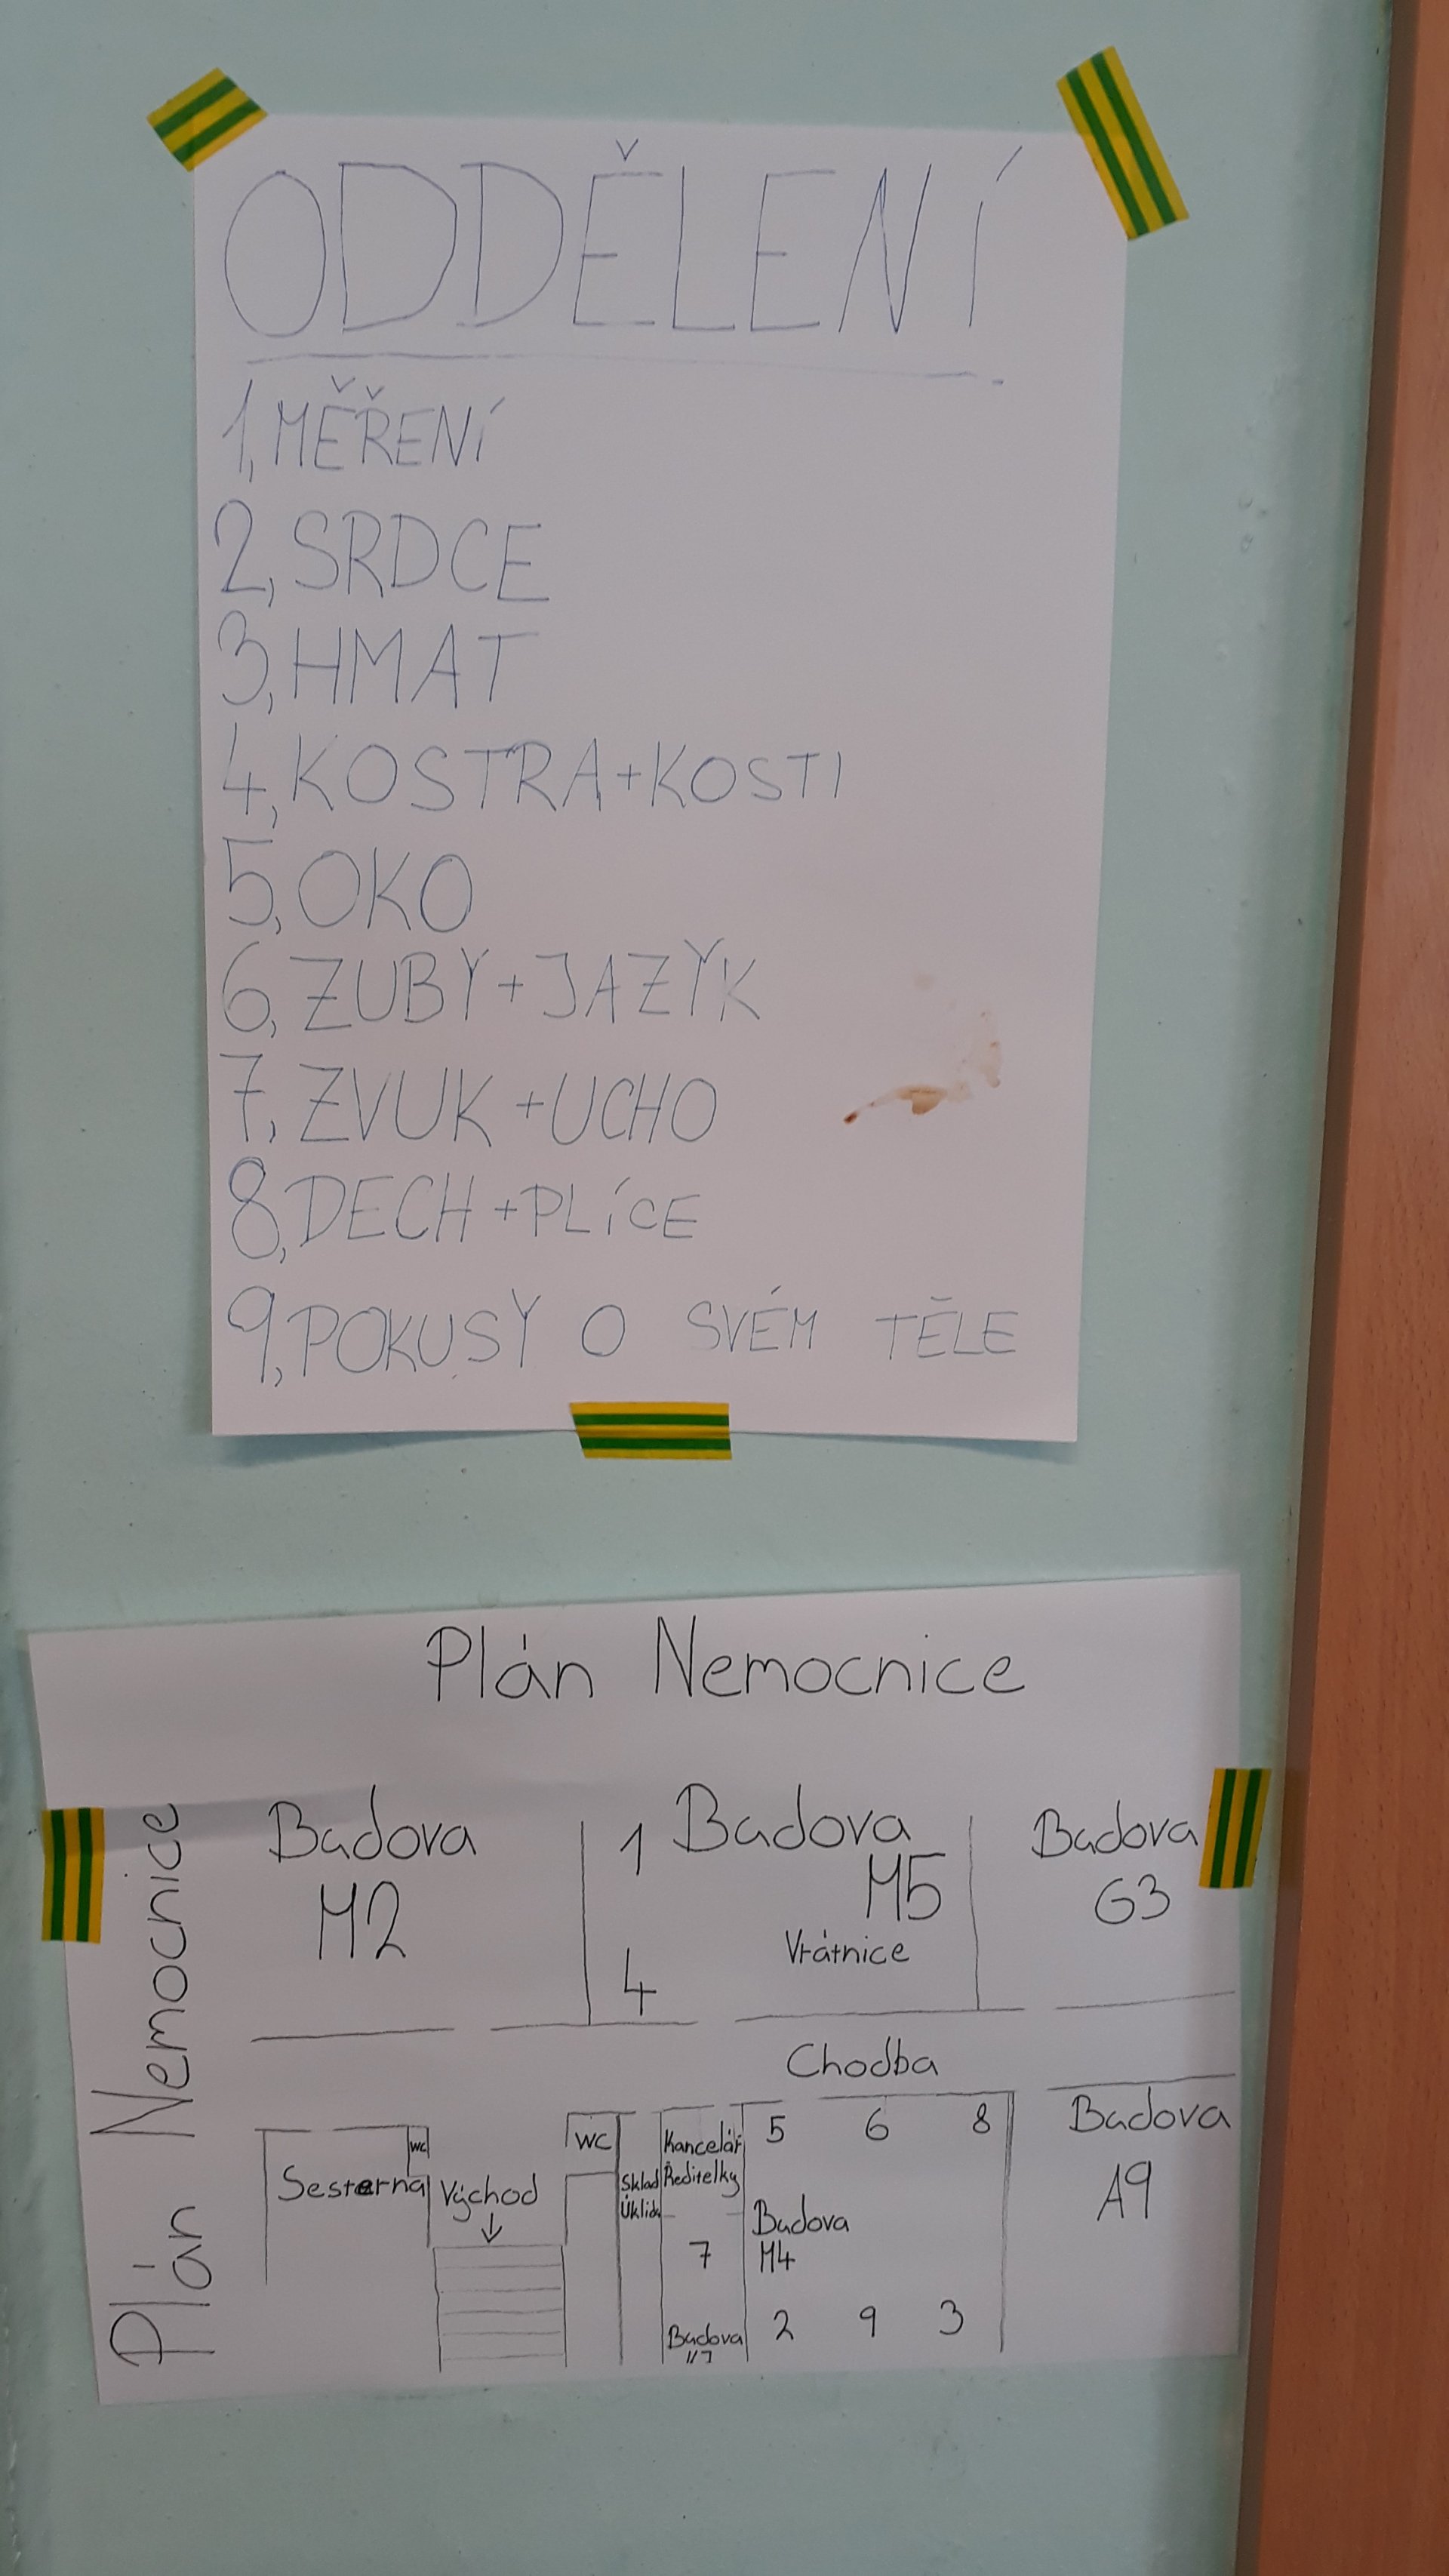 ODDĚLENÍ
1, MĚŘENÍ
2, SRDCE
3, HMAT
4, KOSTRA+KOSTI
5, OKO
6, ZUBY+JAZYK
7, ZVUK+UCHO
8, DECH+PLÍCE
9, POKUSY O SVÉM TĚLE
Plán Nemocnice
Plán Nemocnice
Budova
M2
1
4
Budova
M5
Vrátnice
Budova
G3
Chodba
Sesterna
WC
Východ
WC
Sklad
Úklidu
Kancelář
Ředitelky
7
Budova
5 6 8
Budova
M4
2 9 3
Budova
A9